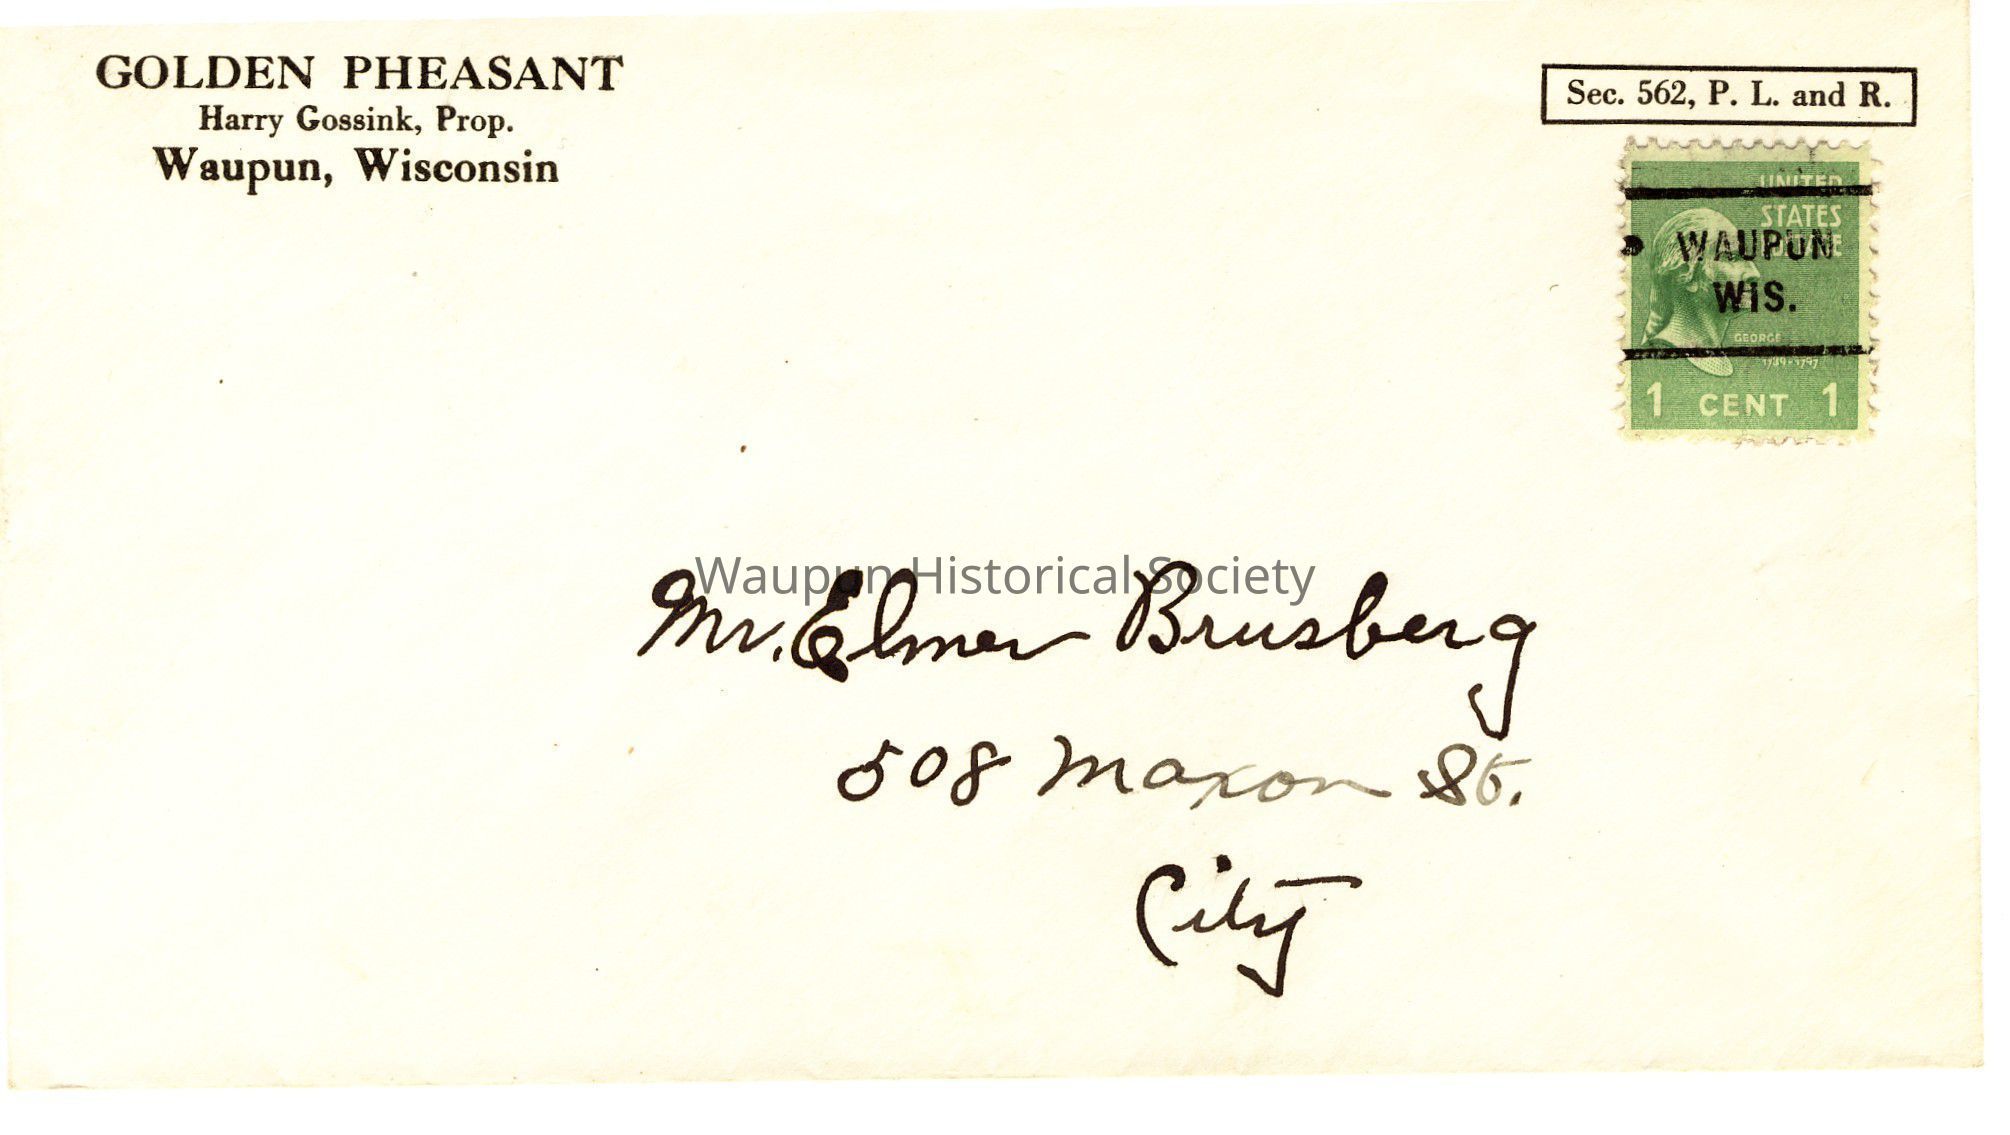 GOLDEN PHEASANT
Harry Gossink, Prop.
Waupun, Wisconsin
Sec. 562, P. L. and R.
UNITED
STATES
WAUPUN
WIS.
GEORGE
1 CENT 1
Waupun Historical Society
Mr. Elmer Brusberg
508 Maxon St.
City